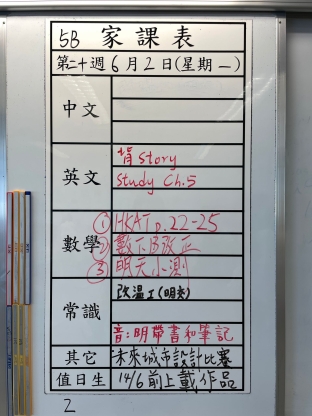 5B 家課表
第二十週 6月2日(星期一)
中文
英文
背 story
study Ch.5
數學
① HKAT p.22-25
② 數下B改正
③ 明天小測
常識
改溫工(明交)
音:明帶書和筆記
其它
未來城市設計比賽
值日生
14/6前上載作品
2